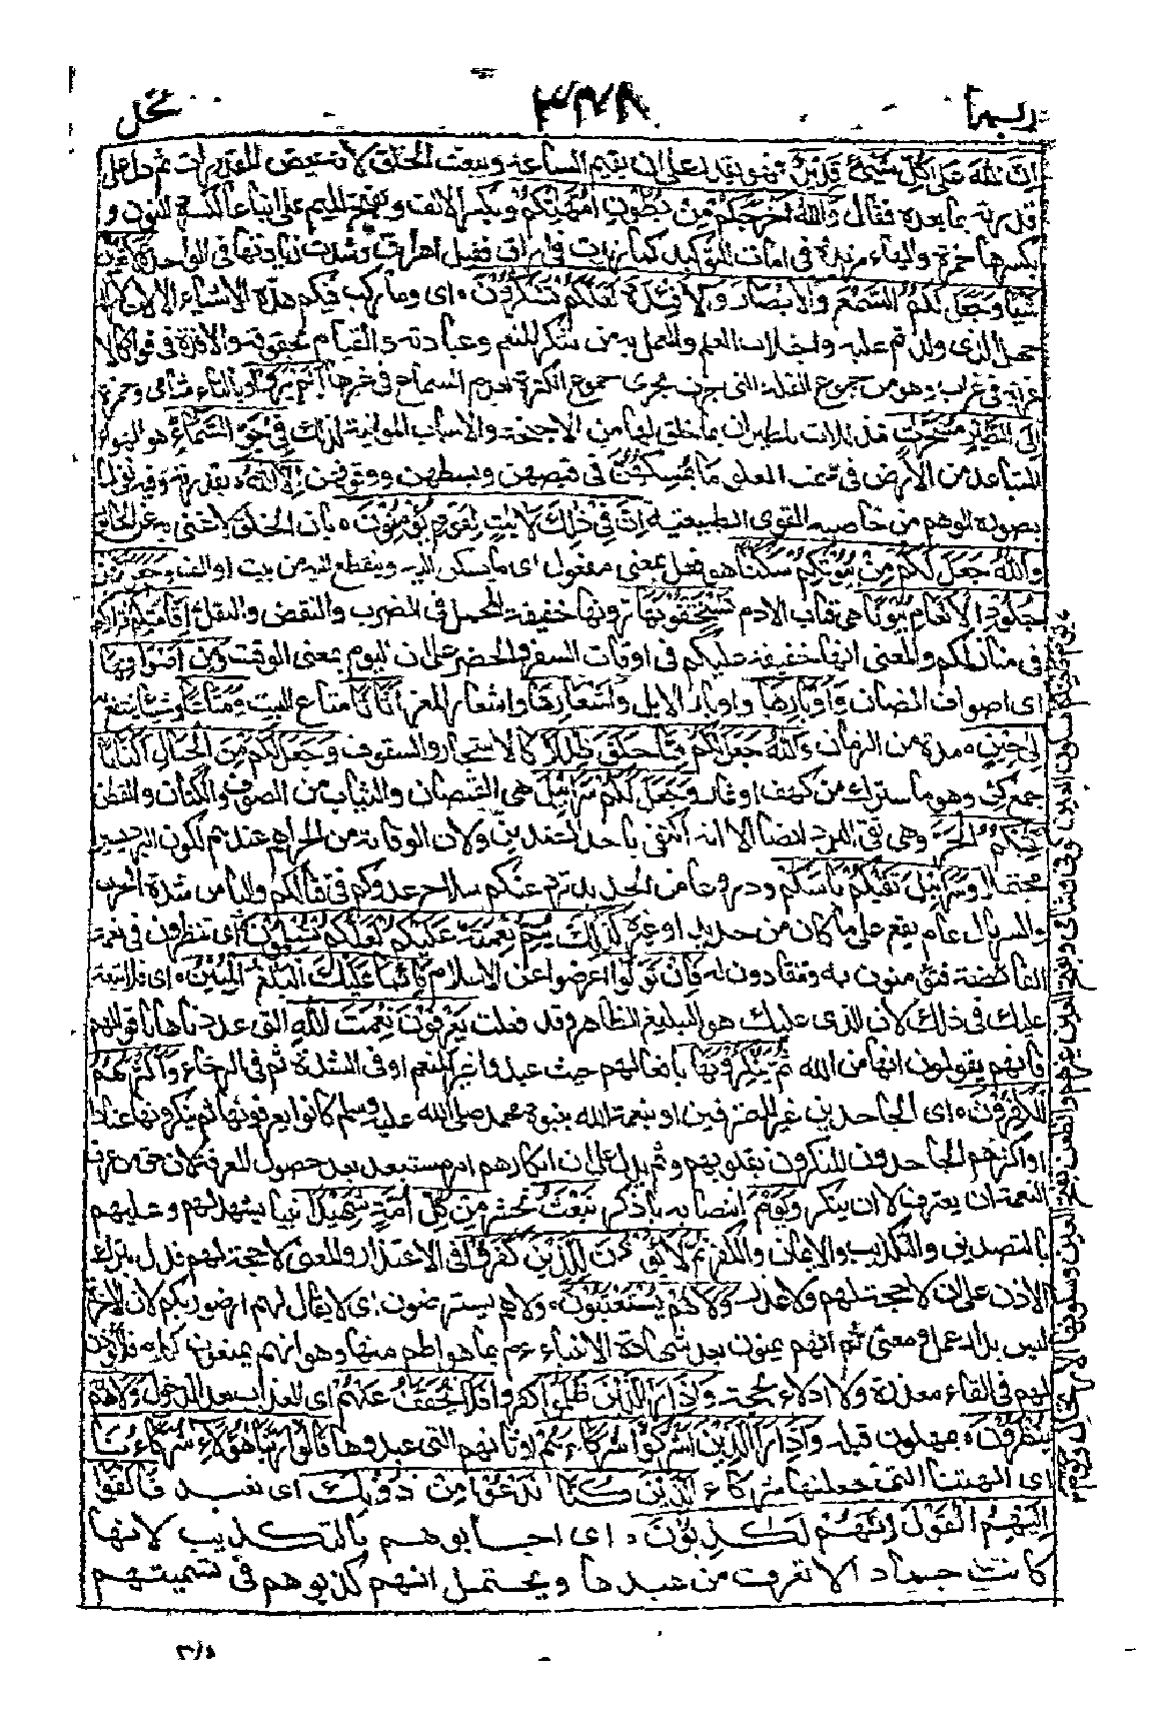 ربما ٣٤٨ نحل
اِنَّ اللّٰهَ عَلٰى كُلِّ شَيْءٍ قَدِيْرٌ فهو يقدر على ان يقيم الساعة ويبعث الخلق لانه بعض المقدورات ثم دل على
قدرته بما بعده فقال وَاللّٰهُ اَخْرَجَكُمْ مِنْ بُطُوْنِ اُمَّهٰتِكُمْ وبكسر الالف وفتح الميم على اتباعا لكسرة النون و
بكسرهما حمزة والهاء مزيدة فى امات للتوكيد كما زيدت فى اراق فقيل اهراق وشذت زيادتها فى الواحدة لَا تَعْلَمُوْنَ
شَيْئًا وَجَعَلَ لَكُمُ السَّمْعَ وَالْاَبْصَارَ وَالْاَفْئِدَةَ لَعَلَّكُمْ تَشْكُرُوْنَ ۝ اى وما ركب فيكم هذه الاشياء الا الات لازالة
الجهل الذى ولدتم عليه واجتلاب العلم والعمل به من شكر المنعم وعبادته والقيام بحقوقه والافئدة فى فؤاد كالا
غربة فى غراب وهو من جموع القلة التى جرت مجرى جموع الكثرة لعدم السماع فى غيرها اَلَمْ يَرَوْا وبالتاء شامى وحمزة
اِلَى الطَّيْرِ مُسَخَّرٰتٍ مذللات للطيران بما خلق لها من الاجنحة والاسباب المواتية لذلك فِيْ جَوِّ السَّمَآءِ هو الهواء
المتباعد من الارض فى سمت العلو مَا يُمْسِكُهُنَّ فى قبضهن وبسطهن ووقوفهن اِلَّا اللّٰهُ بقدرته وفيه نفى لما
يصوره الوهم من خاصية القوى الطبيعية اِنَّ فِيْ ذٰلِكَ لَاٰيٰتٍ لِّقَوْمٍ يُّؤْمِنُوْنَ ۝ بان الخلق لا غنى به عن الخالق
وَاللّٰهُ جَعَلَ لَكُمْ مِنْ بُيُوْتِكُمْ سَكَنًا هو فعل بمعنى مفعول اى ما يسكن اليه وينقطع اليه من بيت او الف وَجَعَلَ لَكُمْ مِنْ
جُلُوْدِ الْاَنْعَامِ بُيُوْتًا هى قباب الادم تَسْتَخِفُّوْنَهَا ترونها خفيفة المحمل فى الضرب والنقض والنقل
فى منازلكم والمعنى انها خفيفة عليكم فى اوقات السفر والحضر على ان اليوم بمعنى الوقت وَمِنْ اَصْوَافِهَا
اى اصواف الضان وَاَوْبَارِهَا واوبار الابل وَاَشْعَارِهَا واشعار المعز اَثَاثًا متاع البيت وَمَتَاعًا وشيئا ينتفع به
اِلٰى حِيْنٍ ۝ مدة من الزمان وَاللّٰهُ جَعَلَ لَكُمْ مِمَّا خَلَقَ ظِلٰلًا كالاشجار والسقوف وَجَعَلَ لَكُمْ مِنَ الْجِبَالِ اَكْنَانًا
جمع كن وهو ما سترك من كهف او غار وَجَعَلَ لَكُمْ سَرَابِيْلَ هى القمصان والثياب من الصوف والكتان والقطن
تَقِيْكُمُ الْحَرَّ وهى تقى البرد ايضا الا انه اكتفى باحد الضدين ولان الوقاية من الحر اهم عندهم لكون البرد يسيرا
محتملا وَسَرَابِيْلَ تَقِيْكُمْ بَأْسَكُمْ ودروعا من الحديد ترد عنكم سلاح عدوكم فى قتالكم والباس شدة الحرب
والسربال عام يقع على ما كان من حديد او غيره كَذٰلِكَ يُتِمُّ نِعْمَتَهٗ عَلَيْكُمْ لَعَلَّكُمْ تُسْلِمُوْنَ ۝ اى تنظرون فى نعمته
الفائضة فتؤمنون به وتنقادون له فَاِنْ تَوَلَّوْا اعرضوا عن الاسلام فَاِنَّمَا عَلَيْكَ الْبَلٰغُ الْمُبِيْنُ ۝ اى فلا تبعة
عليك فى ذلك لان الذى عليك هو التبليغ الظاهر وقد فعلت يَعْرِفُوْنَ نِعْمَتَ اللّٰهِ التى عددناها باقوالهم
فانهم يقولون انها من الله ثُمَّ يُنْكِرُوْنَهَا بافعالهم حيث عبدوا غير المنعم او فى الشدة ثم فى الرخاء وَاَكْثَرُهُمُ
الْكٰفِرُوْنَ ۝ اى الجاحدين غير المعترفين او بنعمة الله بنبوة محمد صلى الله عليه وسلم كانوا يعرفونها ثم ينكرونها عنادا
واكثرهم الجاحدون المنكرون بقلوبهم وثم يدل على ان انكارهم امر مستبعد بعد حصول المعرفة لان حق من عرف
النعمة ان يعترف لا ان ينكر وَيَوْمَ انتصابه باذكر نَبْعَثُ نحشر مِنْ كُلِّ اُمَّةٍ شَهِيْدًا نبيا يشهد لهم وعليهم
بالتصديق والتكذيب والايمان والكفر ثُمَّ لَا يُؤْذَنُ لِلَّذِيْنَ كَفَرُوْا فى الاعتذار والمعنى لا حجة لهم فدل بترك
الاذن على ان لا حجة لهم ولا عذر وَلَا هُمْ يُسْتَعْتَبُوْنَ ۝ ولا هم يسترضون اى لا يقال لهم ارضوا ربكم لان الاخرة
ليس بدار عمل ومعنى ثم انهم يمنون بعد شهادة الانبياء عم بما هو اطم منها وهو انهم يمنعون الكلام فلا يؤذن
لهم فى القاء معذرة ولا ادلاء بحجة وَاِذَا رَاَ الَّذِيْنَ ظَلَمُوا كفروا فَلَا يُخَفَّفُ عَنْهُمْ اى العذاب بعد الدخول وَلَا هُمْ
يُنْظَرُوْنَ ۝ يمهلون قبله وَاِذَا رَاَ الَّذِيْنَ اَشْرَكُوْا شُرَكَآءَهُمْ اوثانهم التى عبدوها قَالُوْا رَبَّنَا هٰٓؤُلَآءِ شُرَكَآؤُنَا
اى الهتنا التى جعلناها شركاء الَّذِيْنَ كُنَّا نَدْعُوْا مِنْ دُوْنِكَ اى نعبد فَاَلْقَوْا
اِلَيْهِمُ الْقَوْلَ اِنَّكُمْ لَكٰذِبُوْنَ ۝ اى اجابوهم بالتكذيب لانها
كانت جمادا لا تعرف من عبدها ويحتمل انهم كذبوهم فى تسميتهم